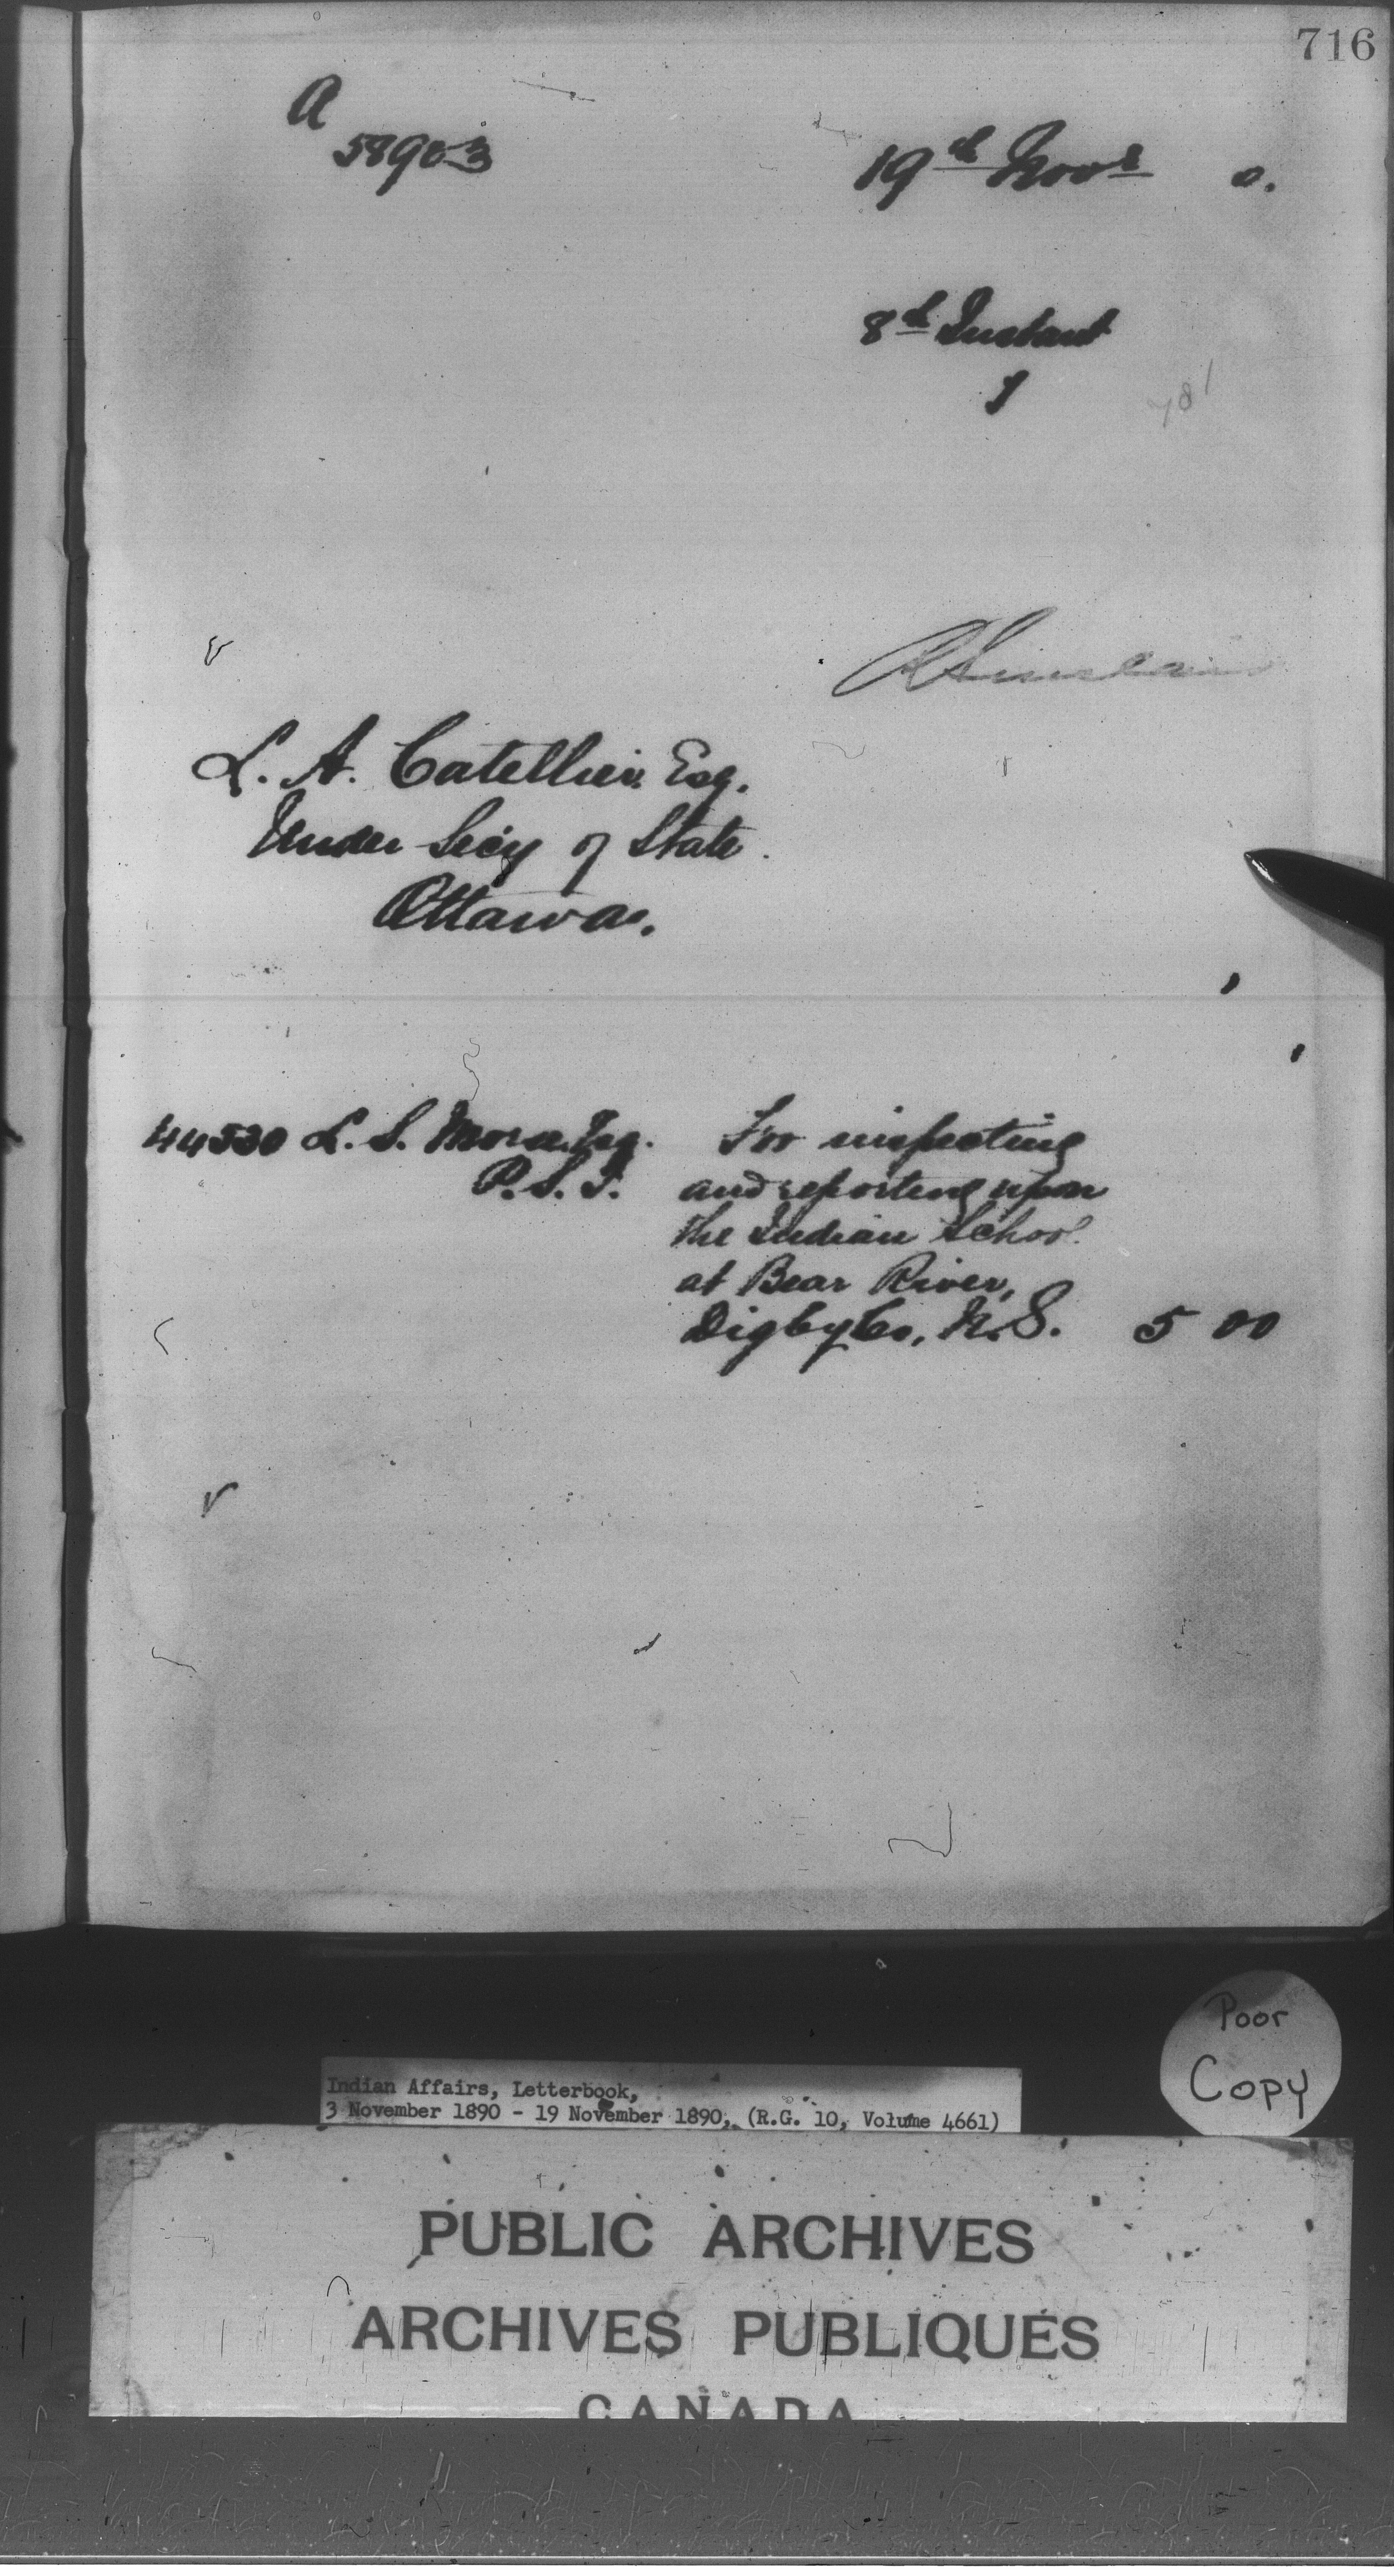 716
A
58903
19th Novr 0.
8th Instant
1
781
R Sinclair
L. A. Catellier Esq.
Under Secy of State.
Ottawa.
44530 L. S. Morse Esq. For inspecting
P.S.I. and reporting upon
the Indian School
at Bear River,
Digby Co, N.S. 5 00
Poor
Copy
Indian Affairs, Letterbook,
3 November 1890 - 19 November 1890, (R.G. 10, Volume 4661)
PUBLIC ARCHIVES
ARCHIVES PUBLIQUES
CANADA